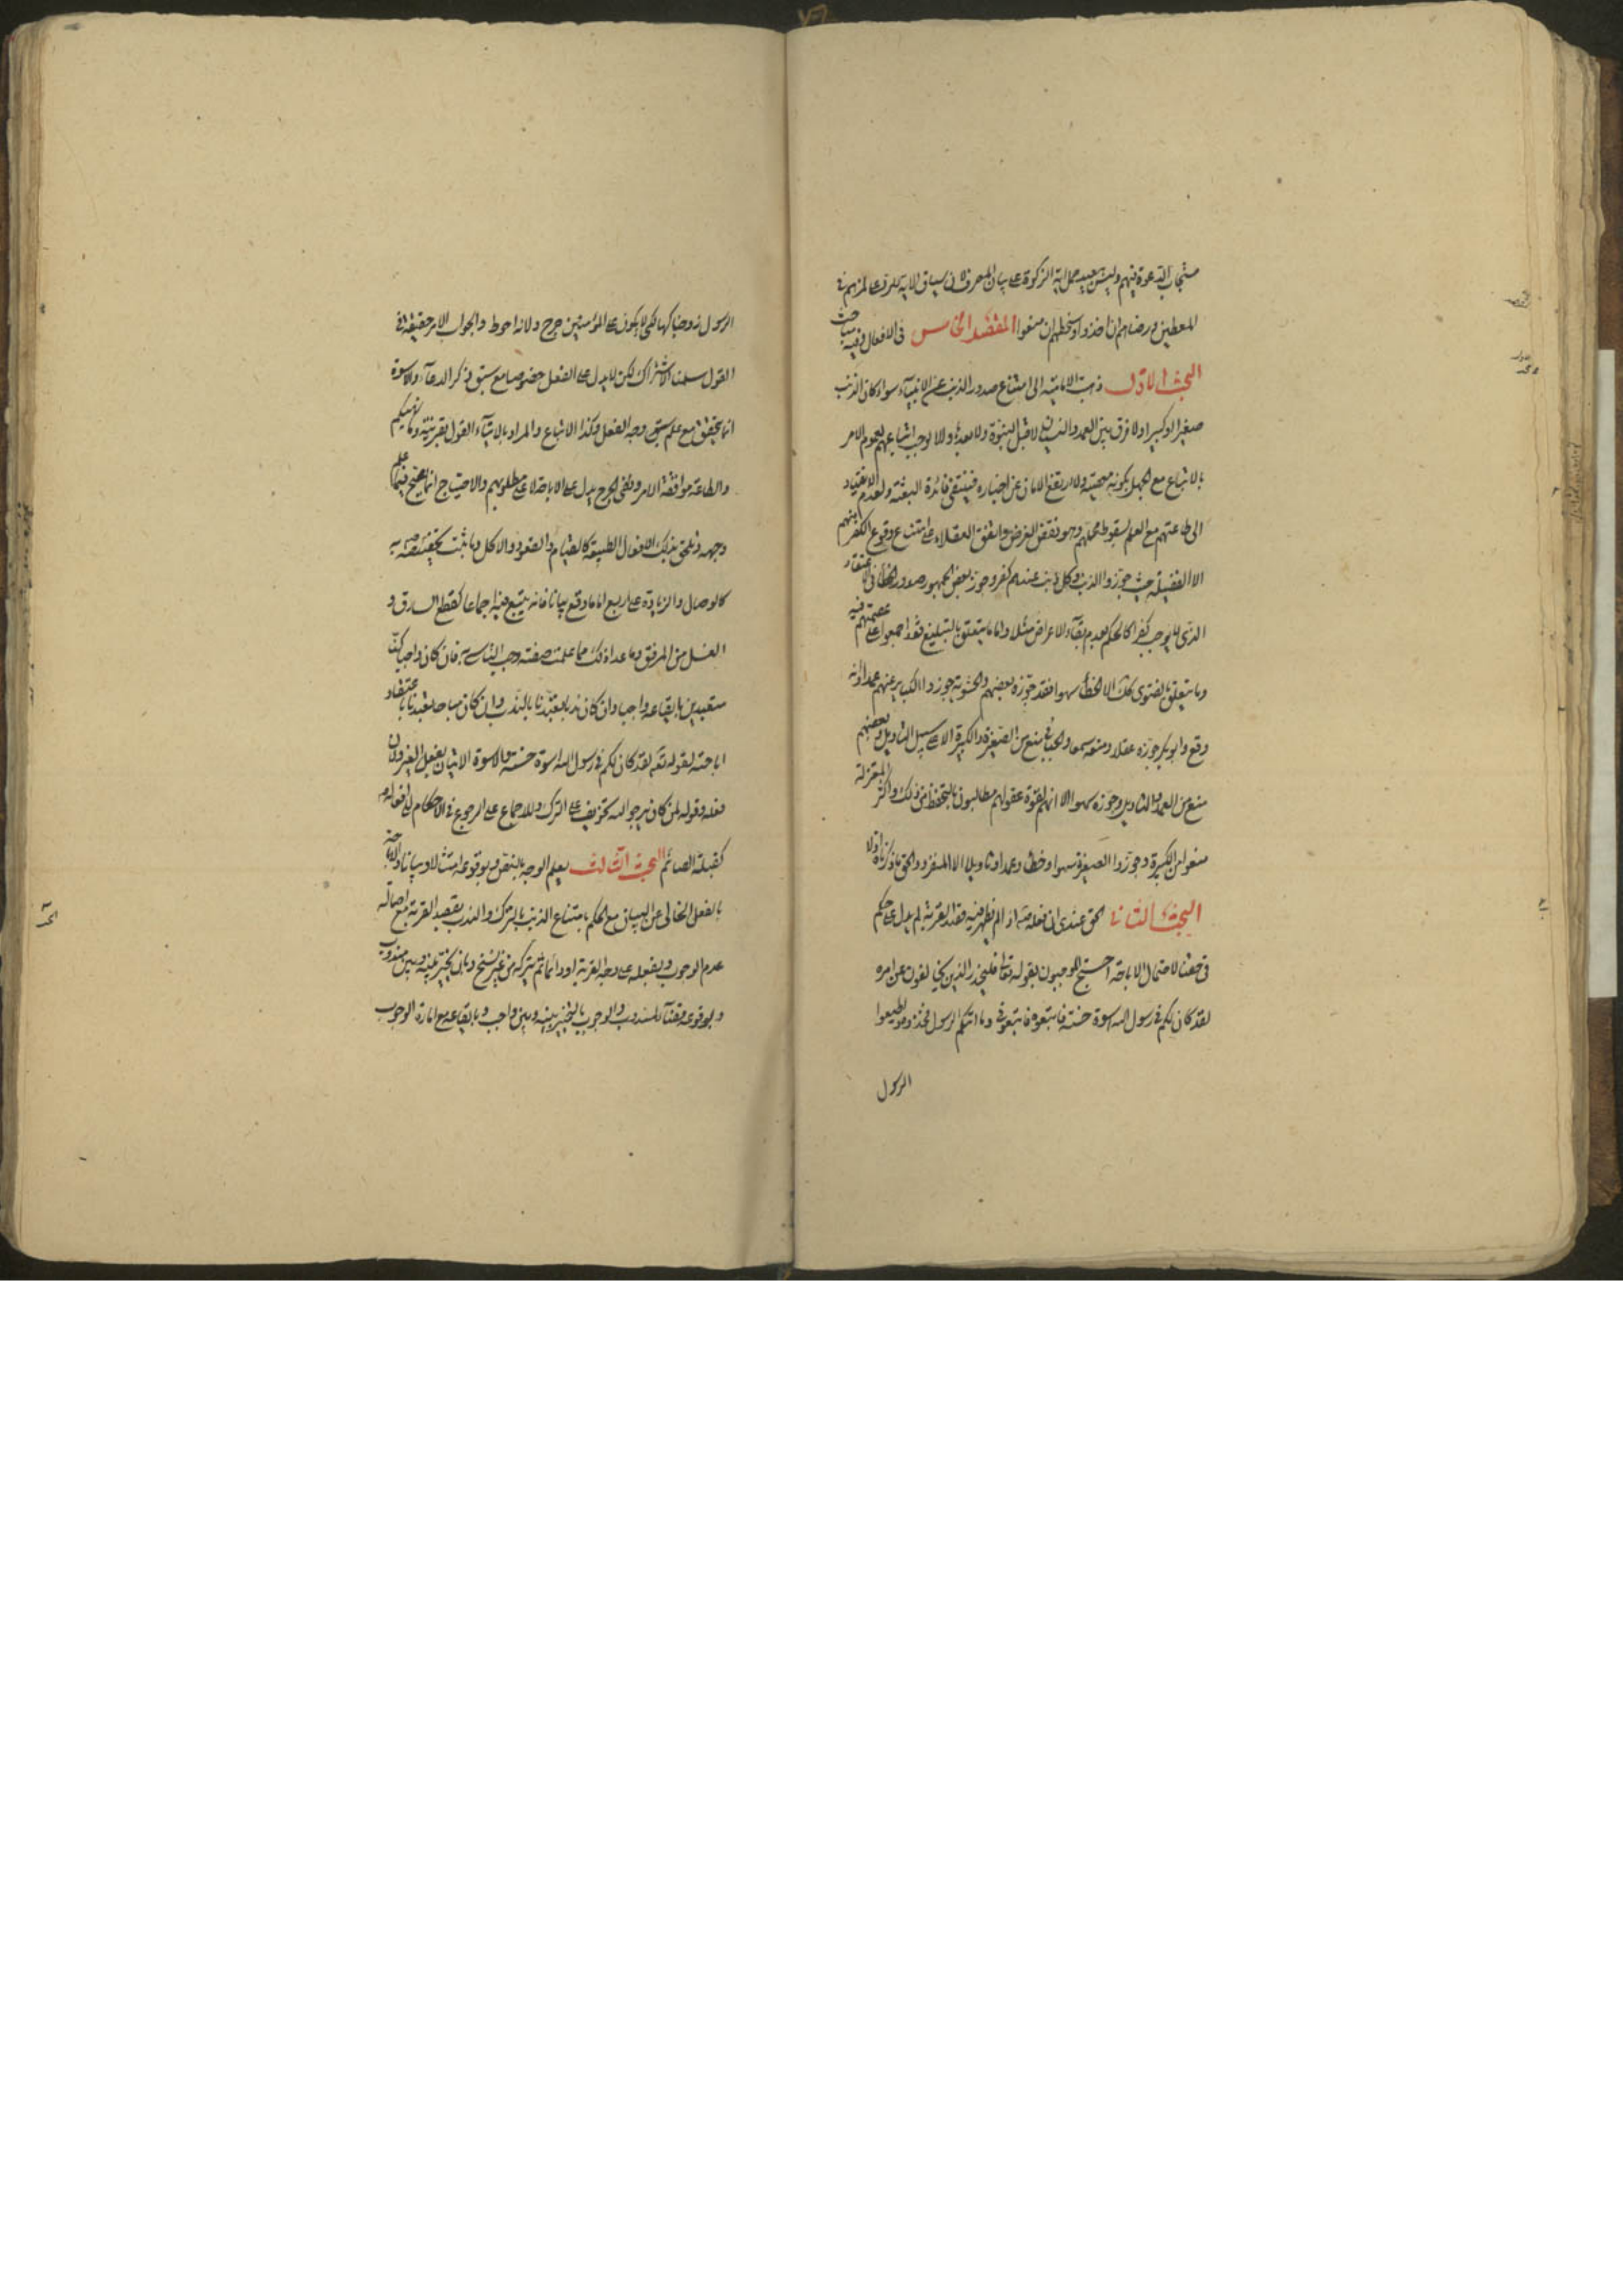 مستجاب الدعوة فيهم وليس ببعيد حمل اية الزكوة على بيان المصرف لان سياق الاية للرد على لمزهم في
المعطين ورضاهم ان اخذوا وسخطهم ان منعوا المقصد الخامس في الافعال وفيه مباحث
البحث الاول ذهبت الامامية الى امتناع صدور الذنب عن الانبياء سواء كان الذنب
صغيرا او كبيرا ولا فرق بين العمد والنسيان لا قبل النبوة ولا بعدها والا لوجب اتباعهم لعموم الامر
بالاتباع مع الجهل بكونه معصية ولارتفع الامان عن اخباره فينتفى فائدة البعثة ولعدم الانقياد
الى طاعتهم مع العلم لسقوط محلهم وهو نقض للغرض واتفق العقلاء على امتناع وقوع الكفر منهم
الا الفضيلية حيث جوزوا الذنب وكل ذنب عندهم كفر وجوز بعض الجمهور صدور الخطأ في اعتقاد
الذى لا يوجب كفرا كالحكم بعدم بقاء الاعراض مثلا واما ما يتعلق بالتبليغ فقد اجمعوا على عصمتهم فيه
وما يتعلق بالفتوى كذلك الا الخطأ سهوا فقد جوزه بعضهم والحشوية جوزوا الكباير عنهم عمدا وانه
وقع وابو بكر جوزه عقلا ومنعه سمعا والجبائى منع من الصغيرة والكبيرة الا على سبيل التاويل وبعضهم
منع من العمد والتاويل وجوزه سهوا الا انهم لقوة عقولهم مطالبون بالتحفظ من ذلك واكثر المعتزلة
منعوا من الكبيرة وجوزوا الصغيرة سهوا وخطأ وعمدا وتاويلا الا المنفر والحق ما ذكرناه اولا
البحث الثانى الحق عندى ان فعله اذا لم يظهر فيه قصد القربة لم يدل على حكم
فى حقنا لاحتمال الاباحة احتج الموجبون بقوله تعالى فليحذر الذين يخالفون عن امره
لقد كان لكم في رسول الله اسوة حسنة فاتبعوه فاتبعونى وما اتيكم الرسول فخذوه واطيعوا
الرسول
الرسول زوجناكها لكى لا يكون على المؤمنين حرج ولانه احوط والجواب الامر حقيقة فى
القول سلمنا الاشتراك لكن لا يدل على الفعل خصوصا مع سبق ذكر الدعاء والاسوة
انما يتحقق مع علم سبق وجه الفعل وكذا الاتباع والمراد بالايتاء القول بقرينة وما نهيكم
والطاعة موافقة الامر ونفى الحرج يدل على الاباحة لا على مطلوبهم والاحتياج انما يصح فيما علم
وجهه ويلحق بذلك الافعال الطبيعة كالقيام والقعود والاكل وما ثبت تخصيصه به
كالوصال والزيادة على اربع اما ما وقع بيانا فانه يتبع فيه اجماعا كقطع السارق و
الغسل من المرفق وما عداذلك مما علمت صفته وجب التاسى به فان كان واجبا كنا
متعبدين بايقاعه واجبا وان كان ندبا تعبدنا بالندب وان كان مباحا تعبدنا باعتقاد
اباحته لقوله تعالى لقد كان لكم في رسول الله اسوة حسنة والاسوة الاتيان بفعل الغير ولان
فعله وقوله لمن كان يرجو الله تخويف على الترك وللاجماع على الرجوع في الاحكام الى افعاله
كقبلة الصائم البحث الثالث يعلم الوجه بالنص وبوقوعه امتثالا او بيانا والاباحة
بالفعل الخالى عن البيان مع الحكم بامتناع الذنب بالترك والندب بقصد القربة مع اصالة
عدم الوجوب وبفعله على وجه القربة او دائما ثم يتركه من غير نسخ وبان يخير بينه وبين مندوب
وبوقوعه قضاء للمندوب والوجوب بالتخيير بينه وبين واجب وبايقاعه مع امارة الوجوب